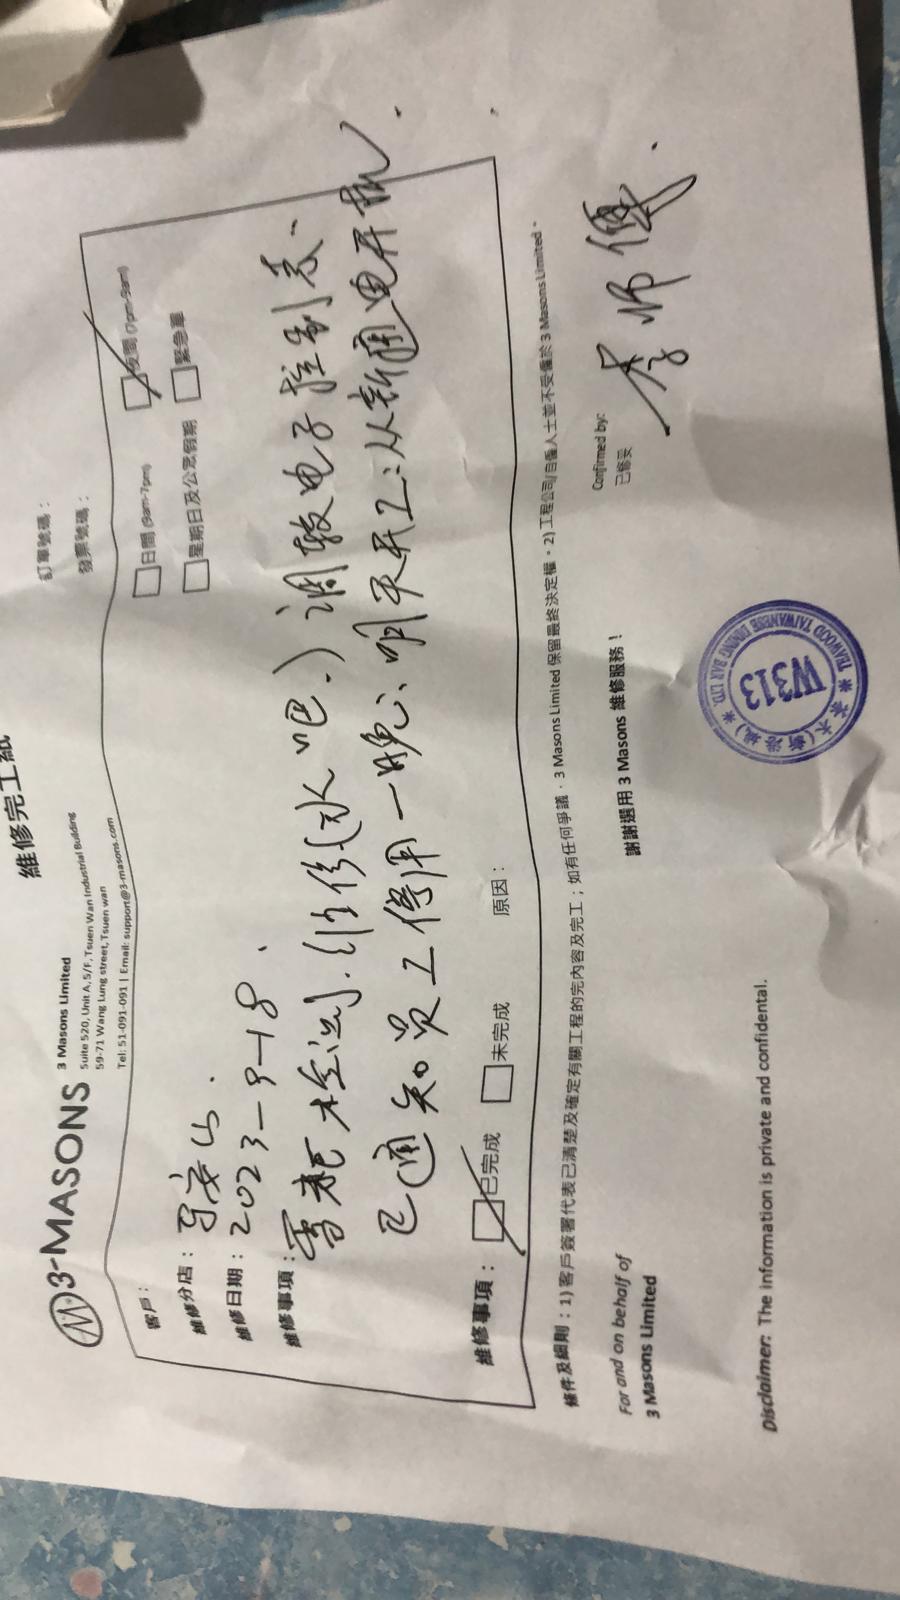 維修完工紙
3-MASONS
3 Masons Limited
Suite 520, Unit A, 5/F, Tsuen Wan Industrial Building
59-71 Wang Lung street, Tsuen wan
Tel: 51-091-091 | Email: support@3-masons.com
訂單號碼：
發票號碼：
客戶：
日間 (9am-7pm)
夜間 (7pm-9am)
維修分店：
馬鞍山
星期日及公眾假期
緊急單
維修日期：2023-9-18
維修事項：
水吧.) 调较电子控制表、
已通知员工停用一晚、明天开工、从新通电开机
維修事項：
已完成
未完成
原因：
條件及細則：1) 客戶簽署代表已清楚及確定有關工程的完內容及完工；如有任何爭議，3 Masons Limited 保留最終決定權。2) 工程公司/自僱人士並不受僱於 3 Masons Limited。
For and on behalf of
3 Masons Limited
謝謝選用 3 Masons 維修服務！
Confirmed by:
已修妥
李师傅
W313
TEAWOOD TAIWANESE DINING BAR LTD.
Disclaimer: The information is private and confidential.